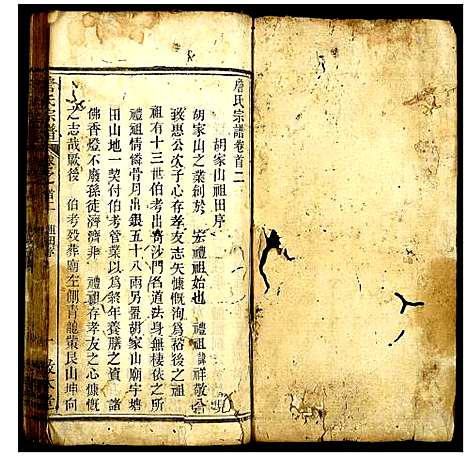 詹氏宗譜卷首二
胡家山祖田序
胡家山之業創於 宏禮祖始也 禮祖諱祥敬公
致惠公次子心存孝友志矢慷慨洵為裕後之祖
祖有十三世伯考出為沙門名道法身無棲依之所
禮祖情憐骨月出銀五十八兩另置胡家山廟宇塘
田山地一契付伯考管業以為終年養膳之資 諸
佛香燈不廢孫徒濟濟非 禮祖存孝友之心慷慨
之志哉厥後 伯考歿葬廟左側青龍嘴艮山坤向
詹氏宗譜
祖田序
一